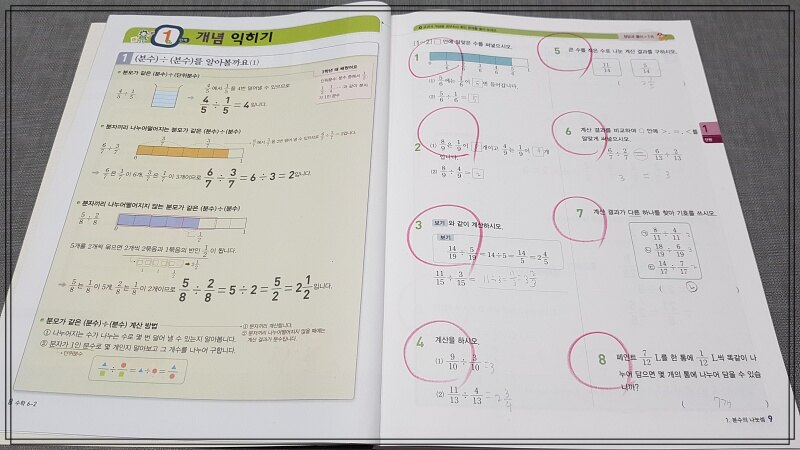 1 개념 익히기
1 (분수)÷(분수)를 알아볼까요(1)
분모가 같은 (분수)÷(단위분수)
4/5 ÷ 1/5
4/5 ÷ 1/5 = 4입니다.
분자끼리 나누어떨어지는 분모가 같은 (분수)÷(분수)
6/7 ÷ 3/7
0 1
⇒ 6/7은 1/7이 6개, 3/7은 1/7이 3개이므로 6/7 ÷ 3/7 = 6÷3 = 2입니다.
분자끼리 나누어떨어지지 않는 분모가 같은 (분수)÷(분수)
5/8 ÷ 2/8
0 1
5개를 2개씩 묶으면 2묶음과 1묶음의 반인 1/2이 됩니다.
⇒ 5/8는 1/8이 5개, 2/8는 1/8이 2개이므로 5/8 ÷ 2/8 = 5÷2 = 5/2 = 2 1/2입니다.
분모가 같은 (분수)÷(분수) 계산 방법
① 나누어지는 수가 나누는 수로 몇 번 덜어 낼 수 있는지 알아봅니다.
② 분자가 1인 분수로 몇 개인지 알아보고 그 개수를 나누어 구합니다.
단위분수
① 분자끼리 계산합니다.
② 분자끼리 나누어떨어지지 않을 때에는
계산 결과가 분수입니다.
8 수학 6-2
[1~2] □ 안에 알맞은 수를 써넣으시오.
1
(2) 5/6 ÷ 1/6 = 5
2
(1) 8/9은 1/9이 8개이고 4/9는 1/9이 4개
입니다.
(2) 8/9 ÷ 4/9 =
3 보기 와 같이 계산하시오.
보기
14/19 ÷ 5/19 = 14÷5 = 14/5 = 2 4/5
11/15 ÷ 3/15 = 11÷3 = 11/3 = 3 2/3
4 계산을 하시오.
(1) 9/10 ÷ 3/10 = 3
(2) 11/13 ÷ 4/13 = 2 3/4
5 큰 수를 작은 수로 나눈 계산 결과를 구하시오.
6 계산 결과를 비교하여 ○ 안에 >, =, <를
알맞게 써넣으시오.
6/7 ÷ 2/7 = 6/13 ÷ 2/13
3 = 3
7 계산 결과가 다른 하나를 찾아 기호를 쓰시오.
㉠ 8/11 ÷ 4/11
㉡ 18/19 ÷ 6/19
㉢ 14/17 ÷ 7/17
8 페인트 7/12 L를 한 통에 1/12 L씩 똑같이 나
누어 담으면 몇 개의 통에 나누어 담을 수 있습
니까?
( 7개 )
1
단원
1. 분수의 나눗셈 9